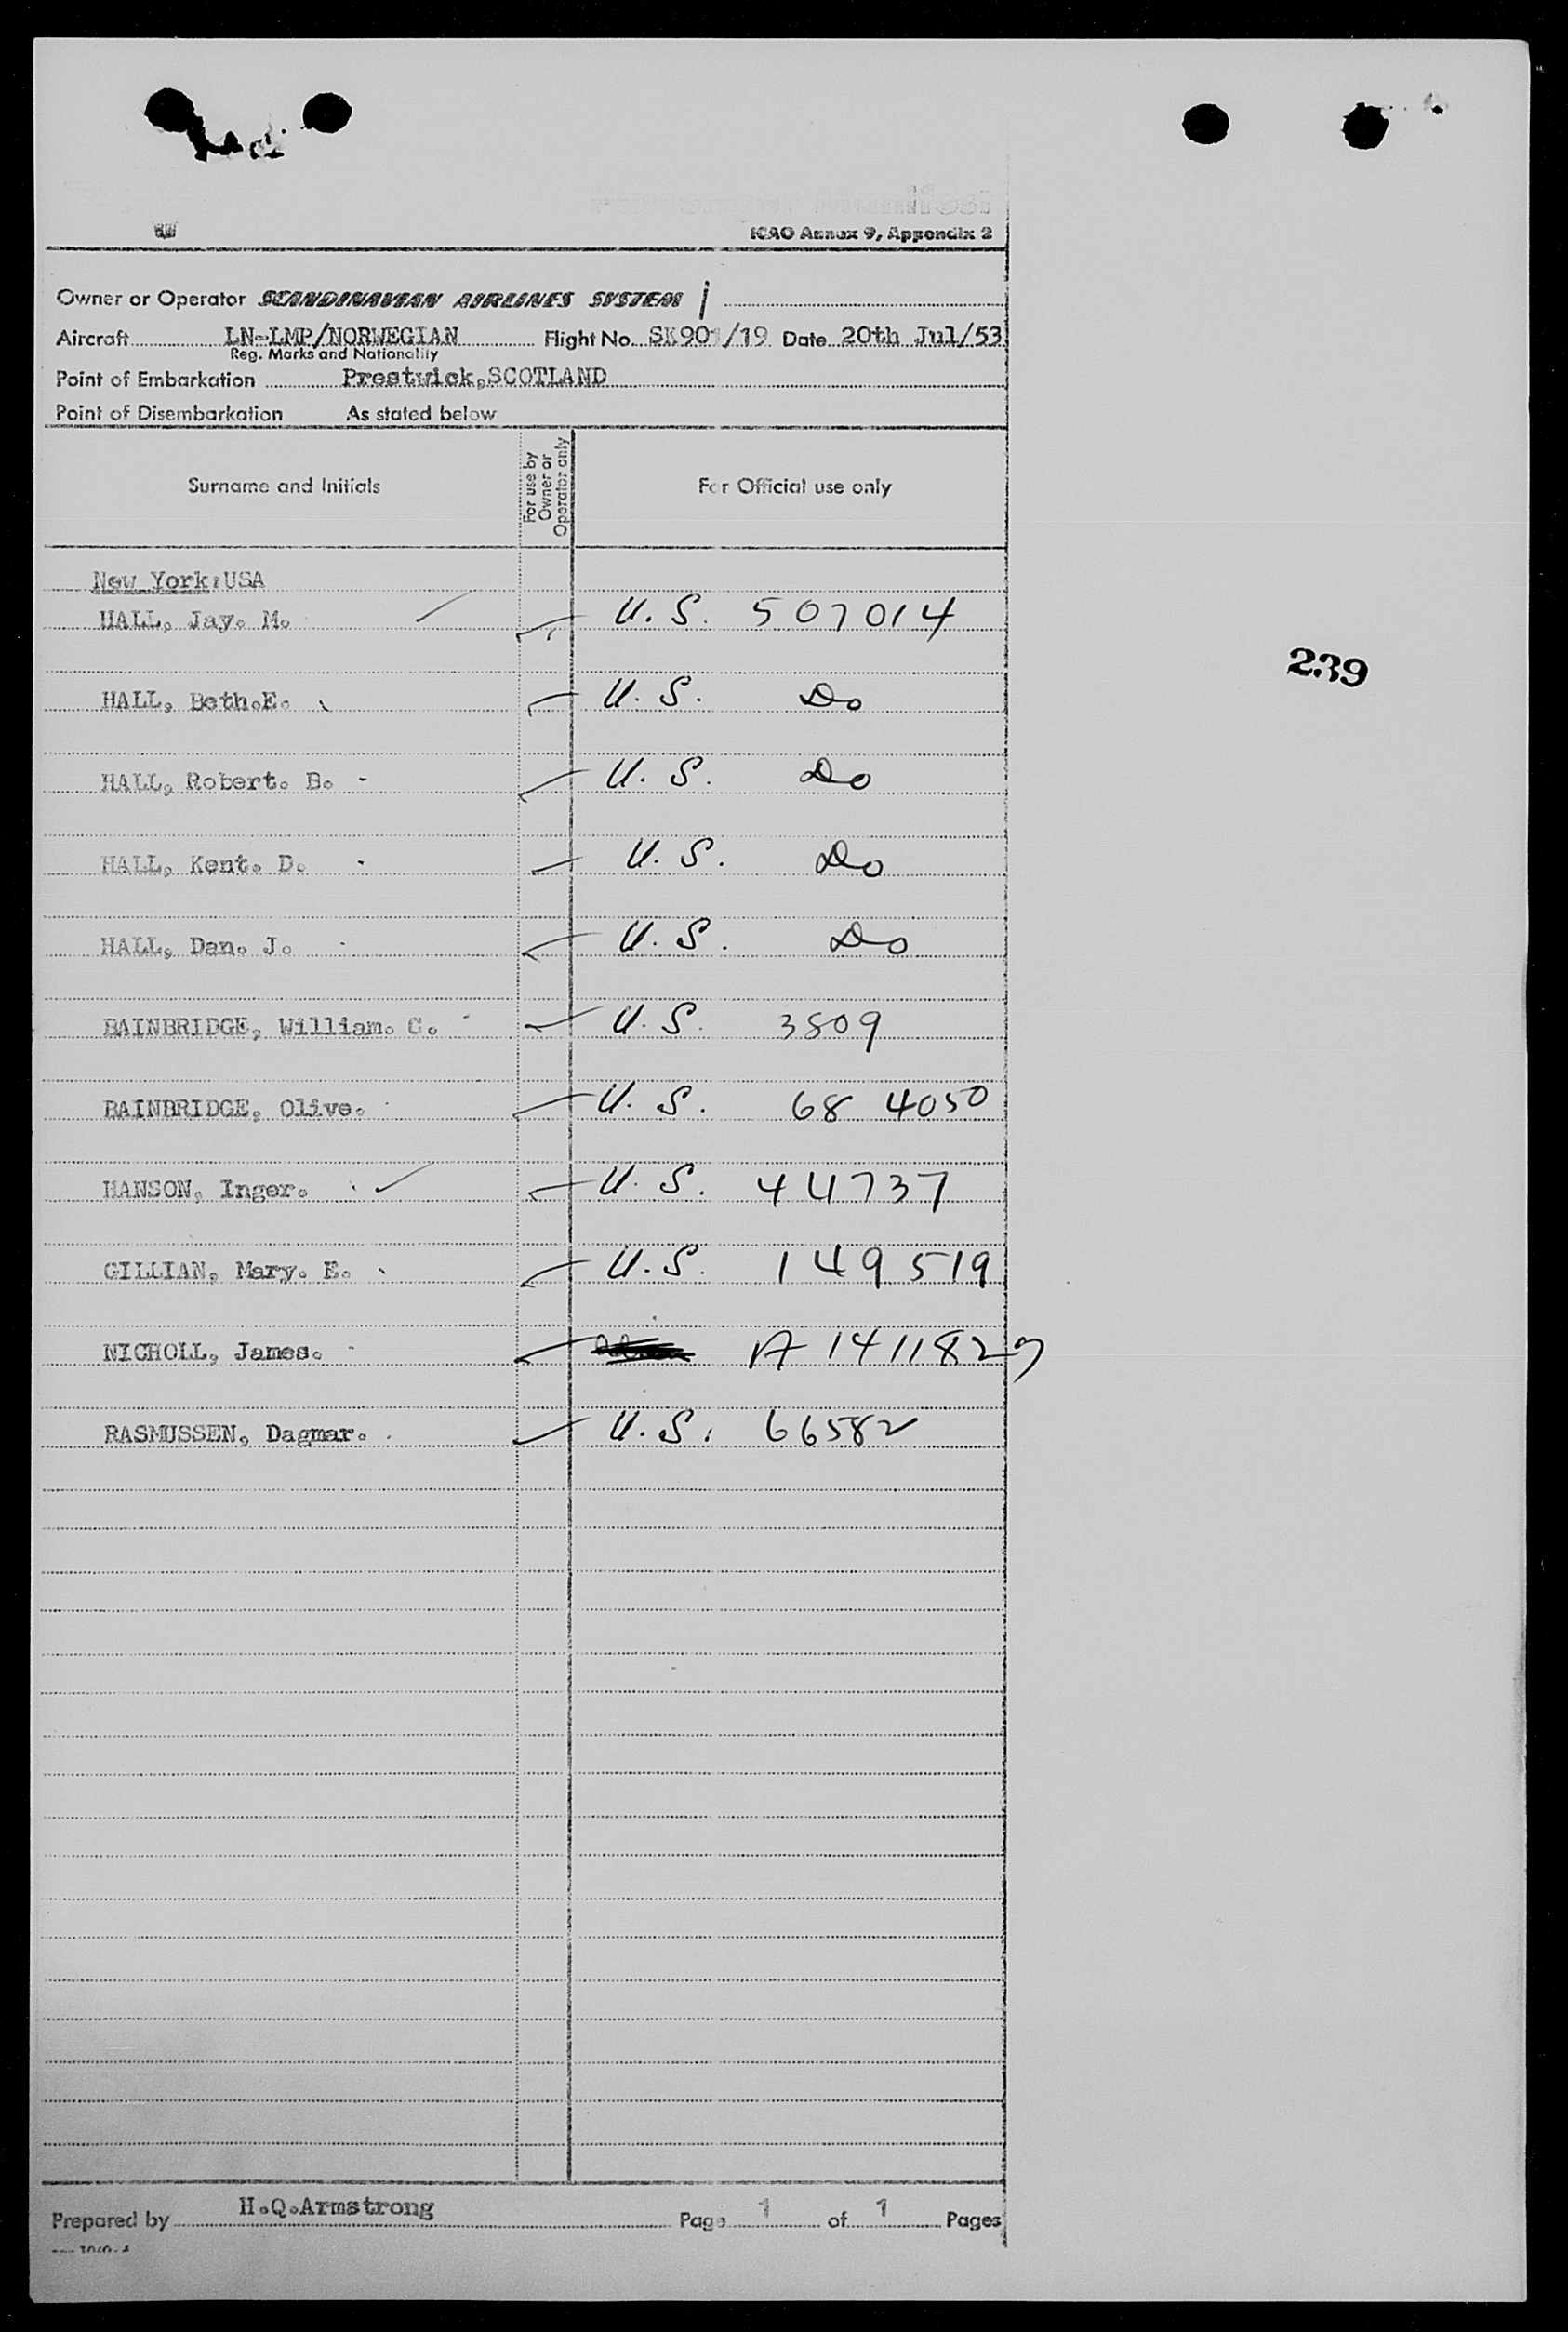 ICAO Annex 9, Appendix 2
Owner or Operator SCANDINAVIAN AIRLINES SYSTEM
Aircraft LN-LMP/NORWEGIAN Flight No. SK901/19 Date 20th Jul/53
Reg. Marks and Nationality
Point of Embarkation Prestwick,SCOTLAND
Point of Disembarkation As stated below
Surname and Initials For use by Owner or Operator only For Official use only
New York:USA
HALL, Jay. M. U.S. 507014
239
HALL, Beth.E. U.S. Do
HALL, Robert. B. U.S. Do
HALL, Kent. D. U.S. Do
HALL, Dan. J. U.S. Do
BAINBRIDGE, William. C. U.S. 3809
BAINBRIDGE, Olive. U.S. 68 4050
HANSON, Inger. U.S. 44737
GILLIAN, Mary. E. U.S. 149519
NICHOLL, James. A 14111829
RASMUSSEN, Dagmar. U.S. 66582
Prepared by H.Q.Armstrong Page 1 of 1 Pages